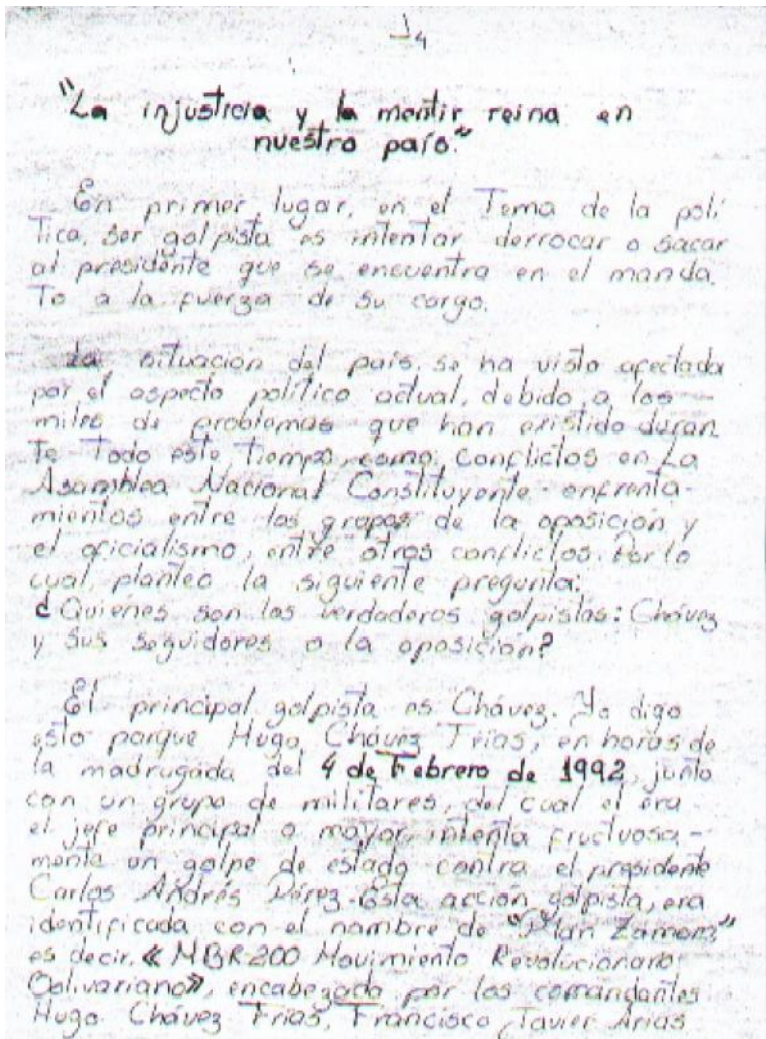 4
"La injusticia y la mentir reina en
nuestro país."
En primer lugar, en el Tema de la polí
Tica, ser golpista es intentar derrocar o sacar
al presidente que se encuentra en el manda.
To a la fuerza de su cargo.
La situación del país, se ha visto afectada
por el aspecto político actual, debido a los
miles de problemas que han existido duran
Te Todo este Tiempo, como: conflictos en La
Asamblea Nacional Constituyente enfrenta-
mientos entre los grupos de la oposición y
el oficialismo, entre otros conflictos. Por lo
cual, planteo la siguiente pregunta:
¿Quiénes son los verdaderos golpistas: Chávez
y sus seguidores o la oposición?
El principal golpista es Chávez. Yo digo
esto porque Hugo Chávez Frías, en horas de
la madrugada del 4 de Febrero de 1992, junto
con un grupo de militares, del cual el era
el jefe principal o mayor, intenta fructuosa-
mente un golpe de estado contra el presidente
Carlos Andrés Pérez. Esta acción golpista, era
identificada con el nombre de "Plan Zamora"
es decir, «MBR-200 Movimiento Revolucionaro
Bolivariano», encabezado por los comandantes
Hugo Chávez Frías, Francisco Javier Arias